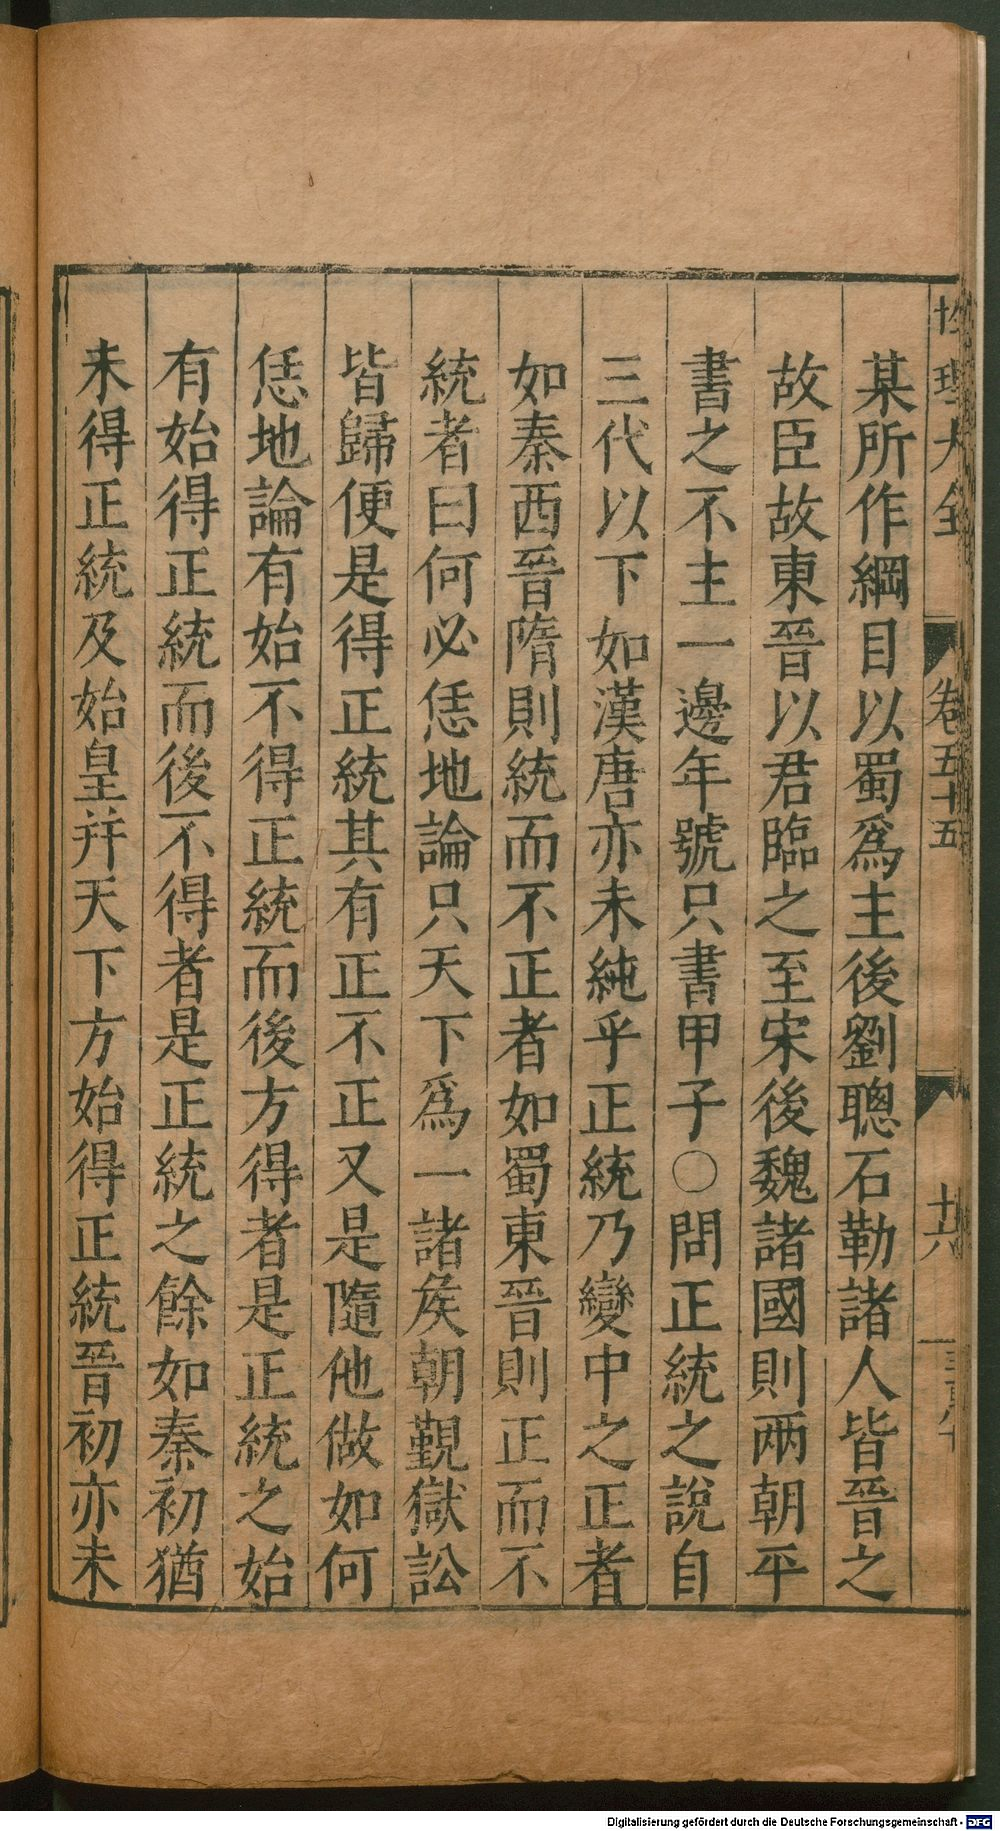 性理大全 卷五十五 十六
某所作綱目以蜀爲主後劉聰石勒諸人皆晉之
故臣故東晉以君臨之至宋後魏諸國則兩朝平
書之不主一邊年號只書甲子○問正統之說自
三代以下如漢唐亦未純乎正統乃變中之正者
如秦西晉隋則統而不正者如蜀東晉則正而不
統者曰何必恁地論只天下爲一諸矦朝覲獄訟
皆歸便是得正統其有正不正又是隨他做如何
恁地論有始不得正統而後方得者是正統之始
有始得正統而後不得者是正統之餘如秦初猶
未得正統及始皇幷天下方始得正統晉初亦未
Digitalisierung gefördert durch die Deutsche Forschungsgemeinschaft - DFG